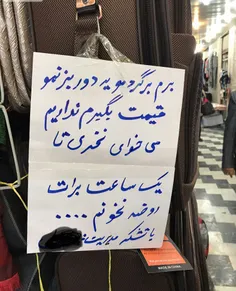 برم برگردم و یه دور بزنمو
قیمت بگیرم نداریم
می خوای نخری تا
یک ساعت برات
روضه نخونم ....
با تشکر مدیریت